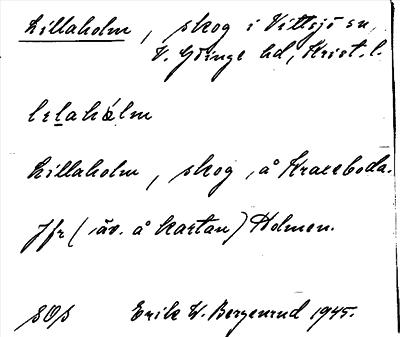 Lillaholm, skog i Vittsjö sn,
V. Göinge hd, Krist. l.
lɩlahȯlm
Lillaholm, skog, å Kraxeboda.
Jfr (äv. å kartan) Holmen.
SOS Erik W. Bergenrud 1945.